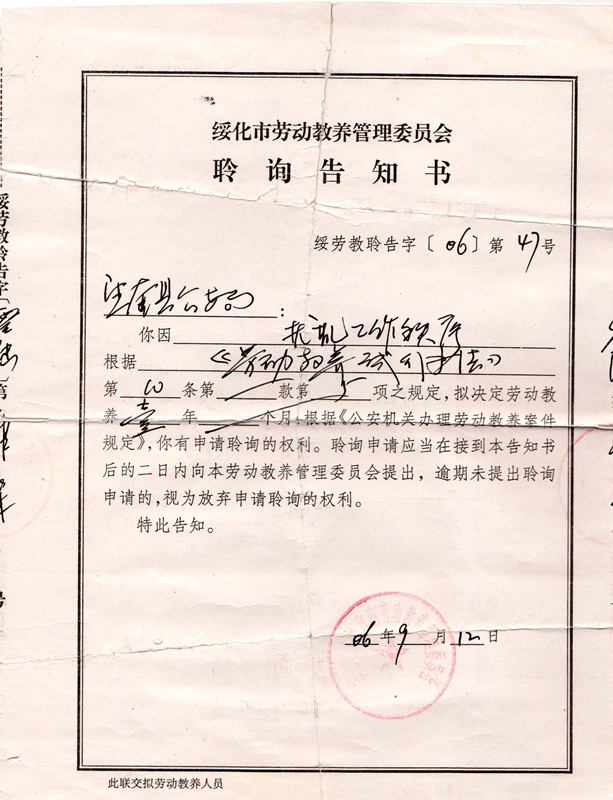 绥化市劳动教养管理委员会
聆询告知书
绥劳教聆告字〔06〕第47号
县公安局:
你因扰乱工作秩序
根据《劳动教养试行办法》
第10条第 款第5项之规定,拟决定劳动教
养壹年 个月.根据《公安机关办理劳动教养案件
规定》,你有申请聆询的权利。聆询申请应当在接到本告知书
后的二日内向本劳动教养管理委员会提出,逾期未提出聆询
申请的,视为放弃申请聆询的权利。
特此告知。
06年9月12日
此联交拟劳动教养人员
绥劳教聆告字